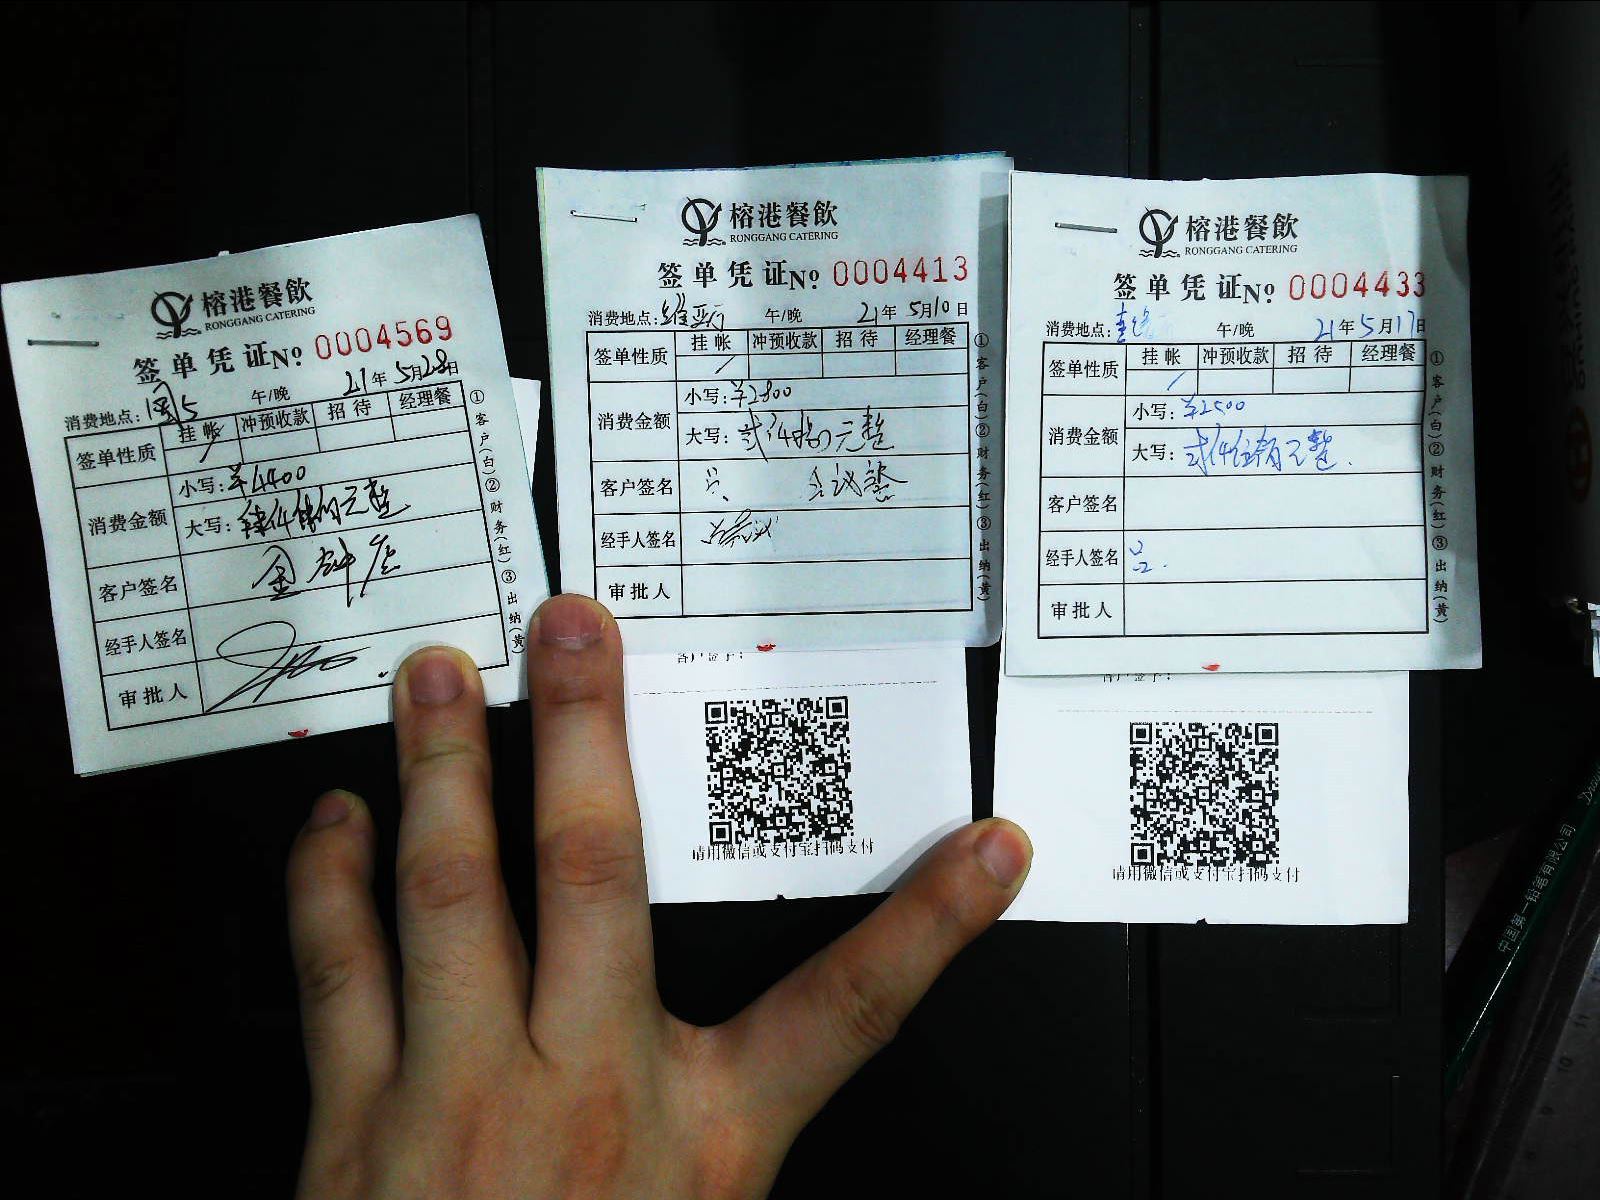 榕港餐飲
RONGGANG CATERING
签单凭证 No 0004569
消费地点: 5 午/晚 21年5月28日
签单性质 挂帐 冲预收款 招待 经理餐
消费金额 小写: ¥4400
大写: 肆仟肆佰元整
客户签名
经手人签名
审批人
①客户(白)②财务(红)③出纳(黄)
榕港餐飲
RONGGANG CATERING
签单凭证 No 0004413
消费地点: 午/晚 21年5月10日
签单性质 挂帐 冲预收款 招待 经理餐
消费金额 小写: ¥2800
大写: 贰仟捌佰元整
客户签名
经手人签名
审批人
①客户(白)②财务(红)③出纳(黄)
请用微信或支付宝扫码支付
榕港餐飲
RONGGANG CATERING
签单凭证 No 0004433
消费地点: 午/晚 21年5月17日
签单性质 挂帐 冲预收款 招待 经理餐
消费金额 小写: ¥2500
大写: 贰仟伍佰元整.
客户签名
经手人签名
审批人
①客户(白)②财务(红)③出纳(黄)
请用微信或支付宝扫码支付
中国第一铅笔有限公司